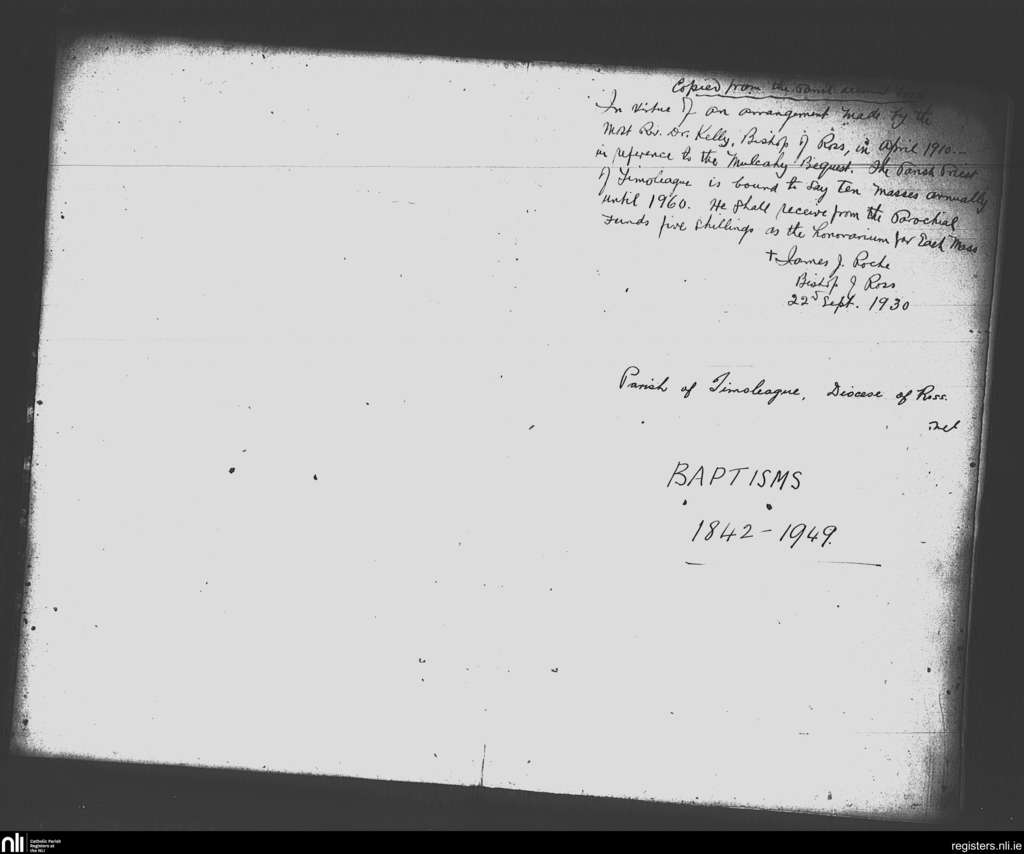 Copied from the Parish account book
In virtue of an arrangement made by the
Most Rev. Dr. Kelly, Bishop of Ross, in April 1910 ...
in reference to the Mulcahy Bequest. The Parish Priest
of Timoleague is bound to say ten masses annually
until 1960. He shall receive from the Parochial
Funds five shillings as the honorarium for Each Mass
† James J. Roche
Bishop of Ross
22d Sept. 1930
Parish of Timoleague, Diocese of Ross.
BAPTISMS
1842 - 1949.
nli
Catholic Parish
Registers at
the NLI
registers.nli.ie